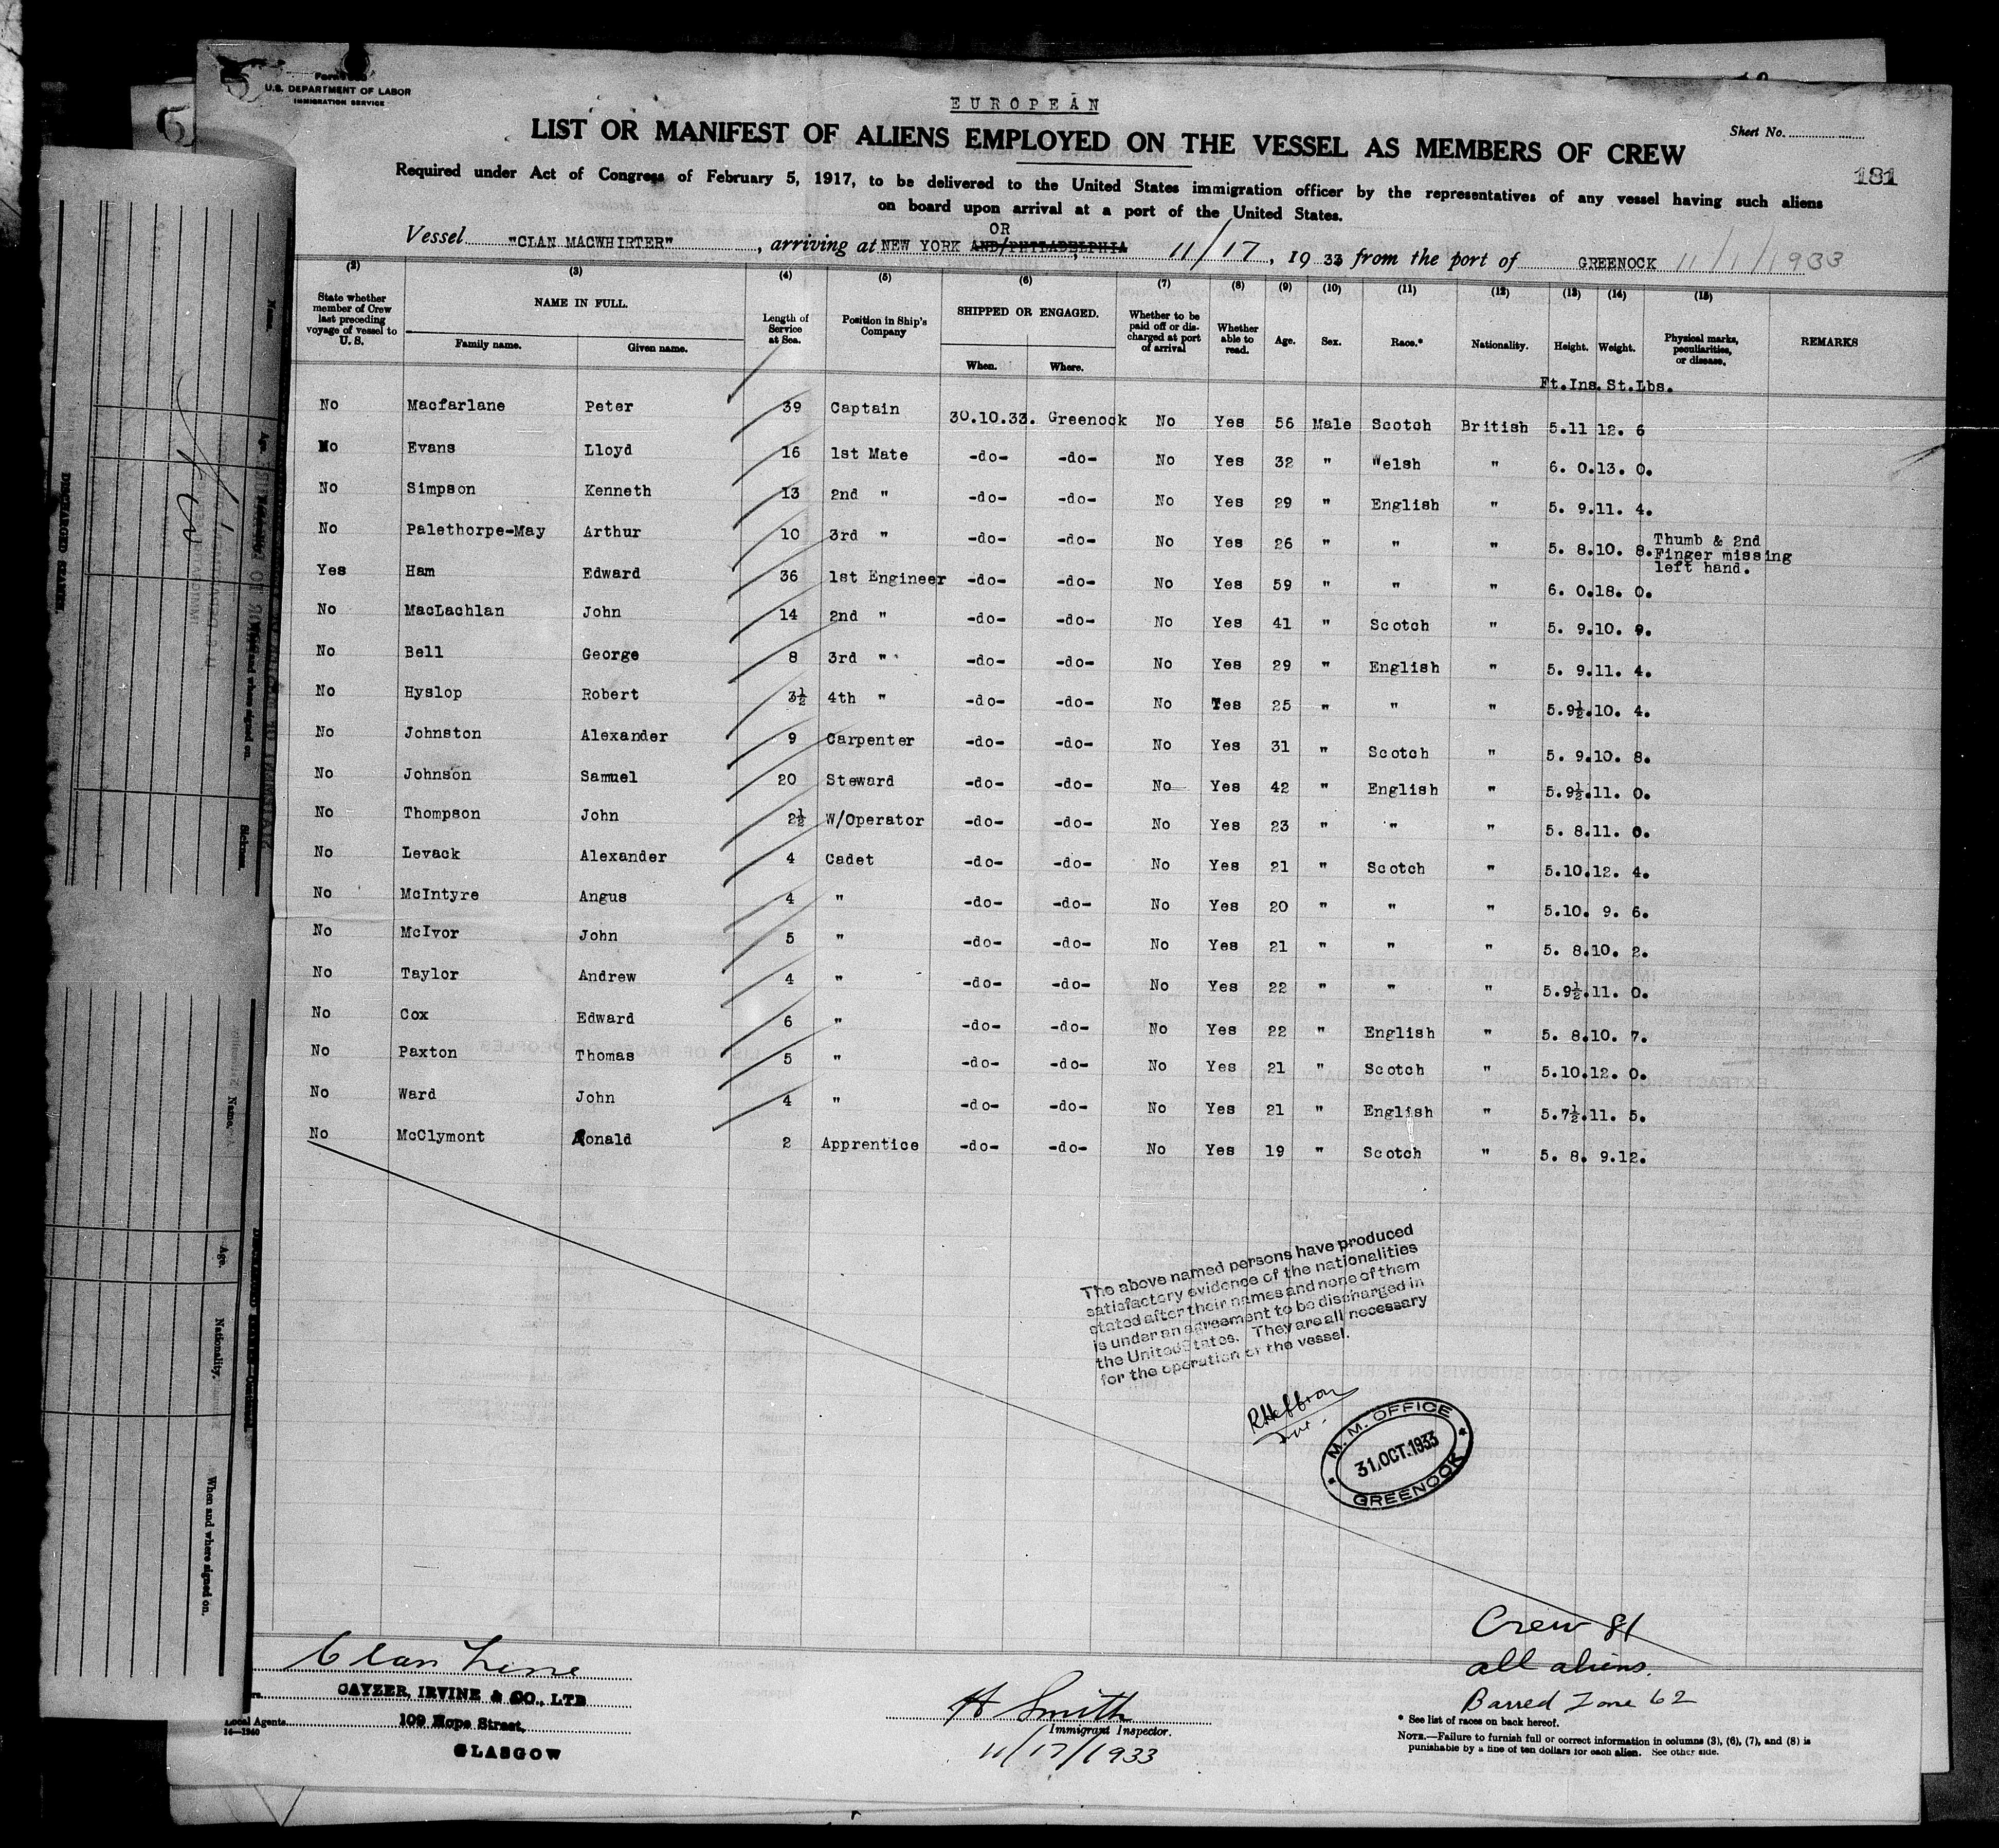 U.S. DEPARTMENT OF LABOR
IMMIGRATION SERVICE
EUROPEAN
LIST OR MANIFEST OF ALIENS EMPLOYED ON THE VESSEL AS MEMBERS OF CREW
Sheet No.
181
Required under Act of Congress of February 5, 1917, to be delivered to the United States immigration officer by the representatives of any vessel having such aliens
on board upon arrival at a port of the United States.
OR
Vessel "CLAN MACWHIRTER", arriving at NEW YORK AND/PHILADELPHIA 11/17, 1933 from the port of GREENOCK 11/1/1933
(2) (3) (4) (5) (6) (7) (8) (9) (10) (11) (12) (13) (14) (15)
State whether member of Crew last preceding voyage of vessel to U. S. NAME IN FULL. Family name. Given name. Length of Service at Sea. Position in Ship's Company SHIPPED OR ENGAGED. When. Where. Whether to be paid off or discharged at port of arrival Whether able to read. Age. Sex. Race.* Nationality. Height. Weight. Physical marks, peculiarities, or disease. REMARKS
Ft.Ins.St.Lbs.
No Macfarlane Peter 39 Captain 30.10.33. Greenock No Yes 56 Male Scotch British 5.11 12. 6
No Evans Lloyd 16 1st Mate -do- -do- No Yes 32 " Welsh " 6. 0.13. 0.
No Simpson Kenneth 13 2nd " -do- -do- No Yes 29 " English " 5. 9.11. 4.
No Palethorpe-May Arthur 10 3rd " -do- -do- No Yes 26 " " " 5. 8.10. 8. Thumb & 2nd Finger missing left hand.
Yes Ham Edward 36 1st Engineer -do- -do- No Yes 59 " " " 6. 0.18. 0.
No MacLachlan John 14 2nd " -do- -do- No Yes 41 " Scotch " 5. 9.10. 9.
No Bell George 8 3rd " -do- -do- No Yes 29 " English " 5. 9.11. 4.
No Hyslop Robert 3½ 4th " -do- -do- No Yes 25 " " " 5.9½.10. 4.
No Johnston Alexander 9 Carpenter -do- -do- No Yes 31 " Scotch " 5. 9.10. 8.
No Johnson Samuel 20 Steward -do- -do- No Yes 42 " English " 5.9½.11. 0.
No Thompson John 2½ W/Operator -do- -do- No Yes 23 " " " 5. 8.11. 0.
No Levack Alexander 4 Cadet -do- -do- No Yes 21 " Scotch " 5.10.12. 4.
No McIntyre Angus 4 " -do- -do- No Yes 20 " " " 5.10. 9. 6.
No McIvor John 5 " -do- -do- No Yes 21 " " " 5. 8.10. 2.
No Taylor Andrew 4 " -do- -do- No Yes 22 " " " 5.9½.11. 0.
No Cox Edward 6 " -do- -do- No Yes 22 " English " 5. 8.10. 7.
No Paxton Thomas 5 " -do- -do- No Yes 21 " Scotch " 5.10.12. 0.
No Ward John 4 " -do- -do- No Yes 21 " English " 5.7½.11. 5.
No McClymont Ronald 2 Apprentice -do- -do- No Yes 19 " Scotch " 5. 8. 9.12.
The above named persons have produced
satisfactory evidence of the nationalities
stated after their names and none of them
is under an agreement to be discharged in
the United States. They are all necessary
for the operation of the vessel.
M. M. OFFICE
31.OCT.1933
GREENOCK
Crew 81
all aliens.
Barred Zone 62
Clan Line
CAYZER, IRVINE & CO., LTD
109 Hope Street,
GLASGOW
Local Agents.
14—1240
H Smith
Immigrant Inspector.
11/17/1933
* See list of races on back hereof.
NOTE.—Failure to furnish full or correct information in columns (3), (6), (7), and (8) is
punishable by a fine of ten dollars for each alien. See other side.
DISCHARGED SEAMEN.
Name.
Age.
and when signed on.
Sickness.
Name.
Age.
Nationality.
When and where signed on.